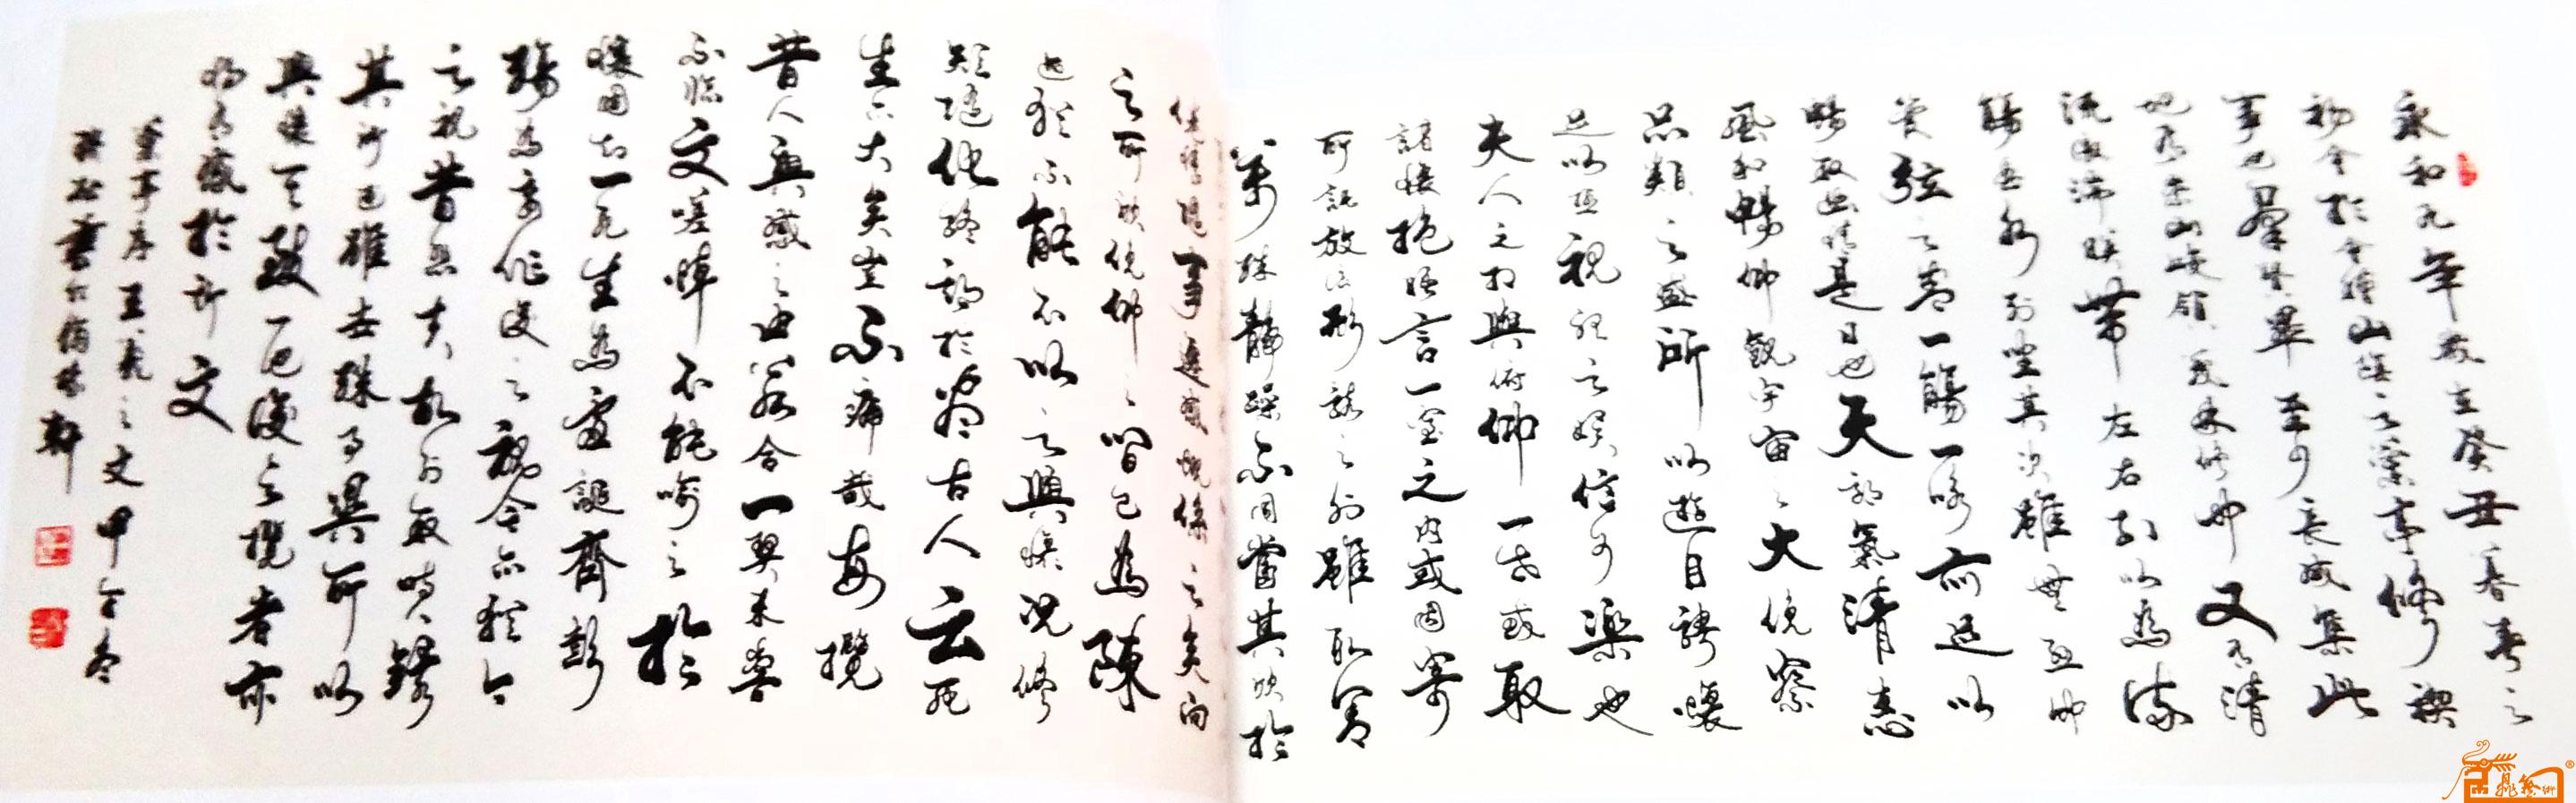 永和九年歲在癸丑暮春之
初會於會稽山陰之蘭亭修禊
事也羣賢畢至少長咸集此
地有崇山峻領茂林修竹又有清
流激湍映帶左右引以為流
觴曲水列坐其次雖無絲竹
管弦之盛一觴一詠亦足以
暢敘幽情是日也天朗氣清惠
風和暢仰觀宇宙之大俯察
品類之盛所以遊目騁懷
足以極視聽之娛信可樂也
夫人之相與俯仰一世或取
諸懷抱悟言一室之內或因寄
所託放浪形骸之外雖取舍
萬殊靜躁不同當其欣於
倦情隨事遷感慨係之矣向
之所欣俛仰之間已為陳
迹猶不能不以之興懷況修
短隨化終期於盡古人云死
生亦大矣豈不痛哉每攬
昔人興感之由若合一契未嘗
不臨文嗟悼不能喻之於
懷固知一死生為虛誕齊彭
殤為妄作後之視今亦猶今
之視昔悲夫故列敘時人錄
其所述雖世殊事異所以
興懷其致一也後之攬者亦
將有感於斯文
蘭亭序王羲之文甲午冬
書於軒